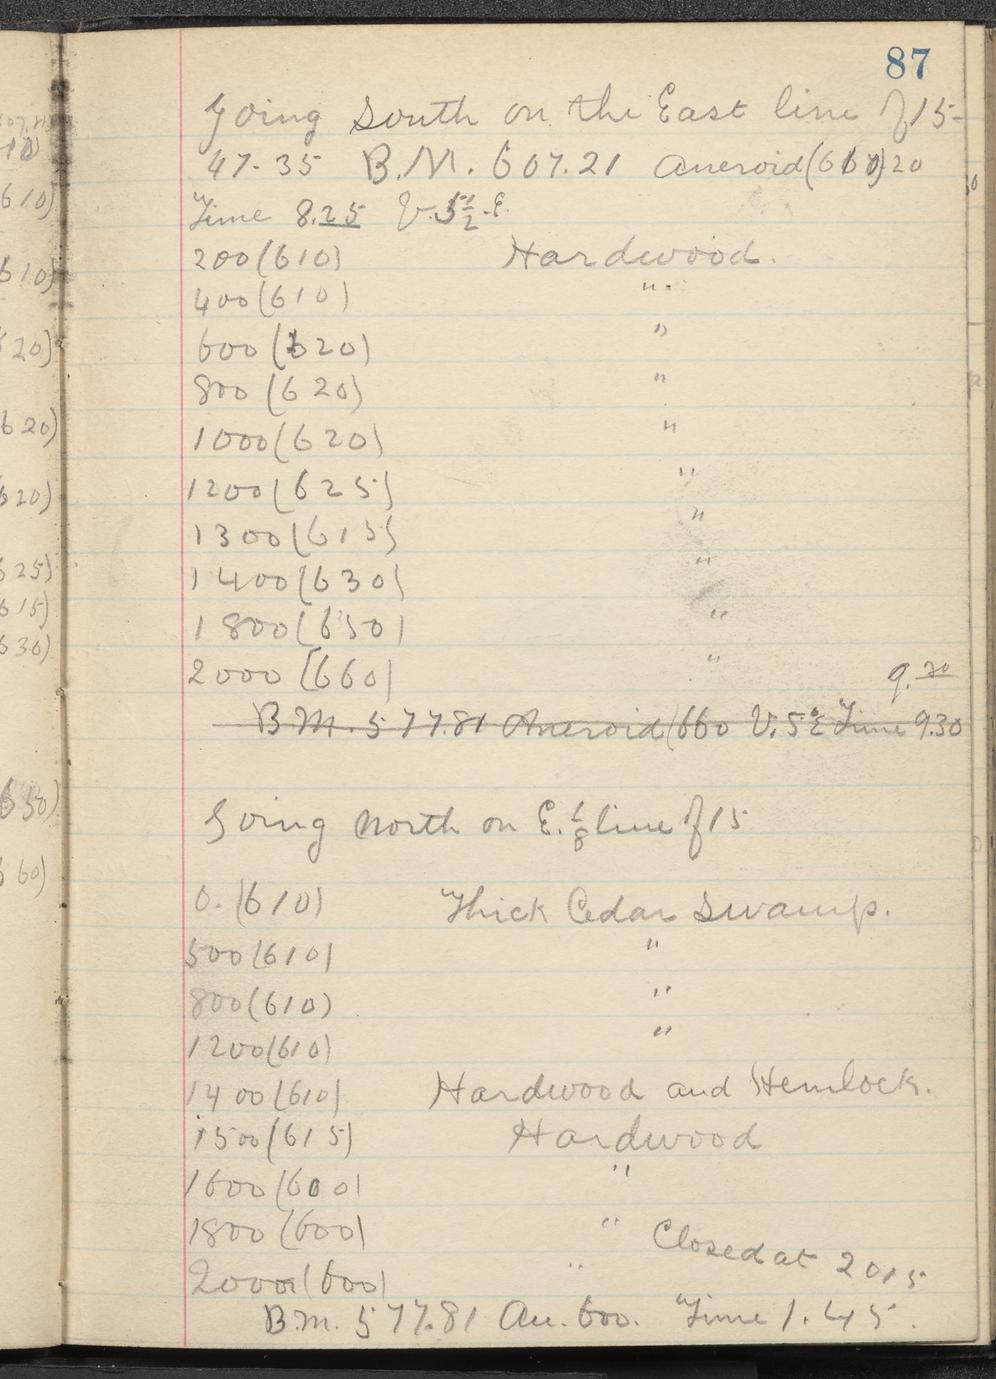 87
Going South on the East line of 15-
47-35 B.M. 607.21 Aneroid (610) 20
Time 8.25 V. 5 1/2 E.
200 (610) Hardwood.
400 (610) "
600 (620) "
800 (620) "
1000 (620) "
1200 (625) "
1300 (615) "
1400 (630) "
1800 (650) "
2000 (660) " 9.30
B.M. 577.81 Aneroid (660 V. 5 E Time 9.30
Going North on E. 1/8 line of 15
0. (610) Thick Cedar Swamp.
500 (610) "
800 (610) "
1200 (610) "
1400 (610) Hardwood and Hemlock.
1500 (615) Hardwood
1600 (600) "
1800 (600) " Closed at 2015
2000 (600) "
B.M. 577.81 An. 600. Time 1.45.